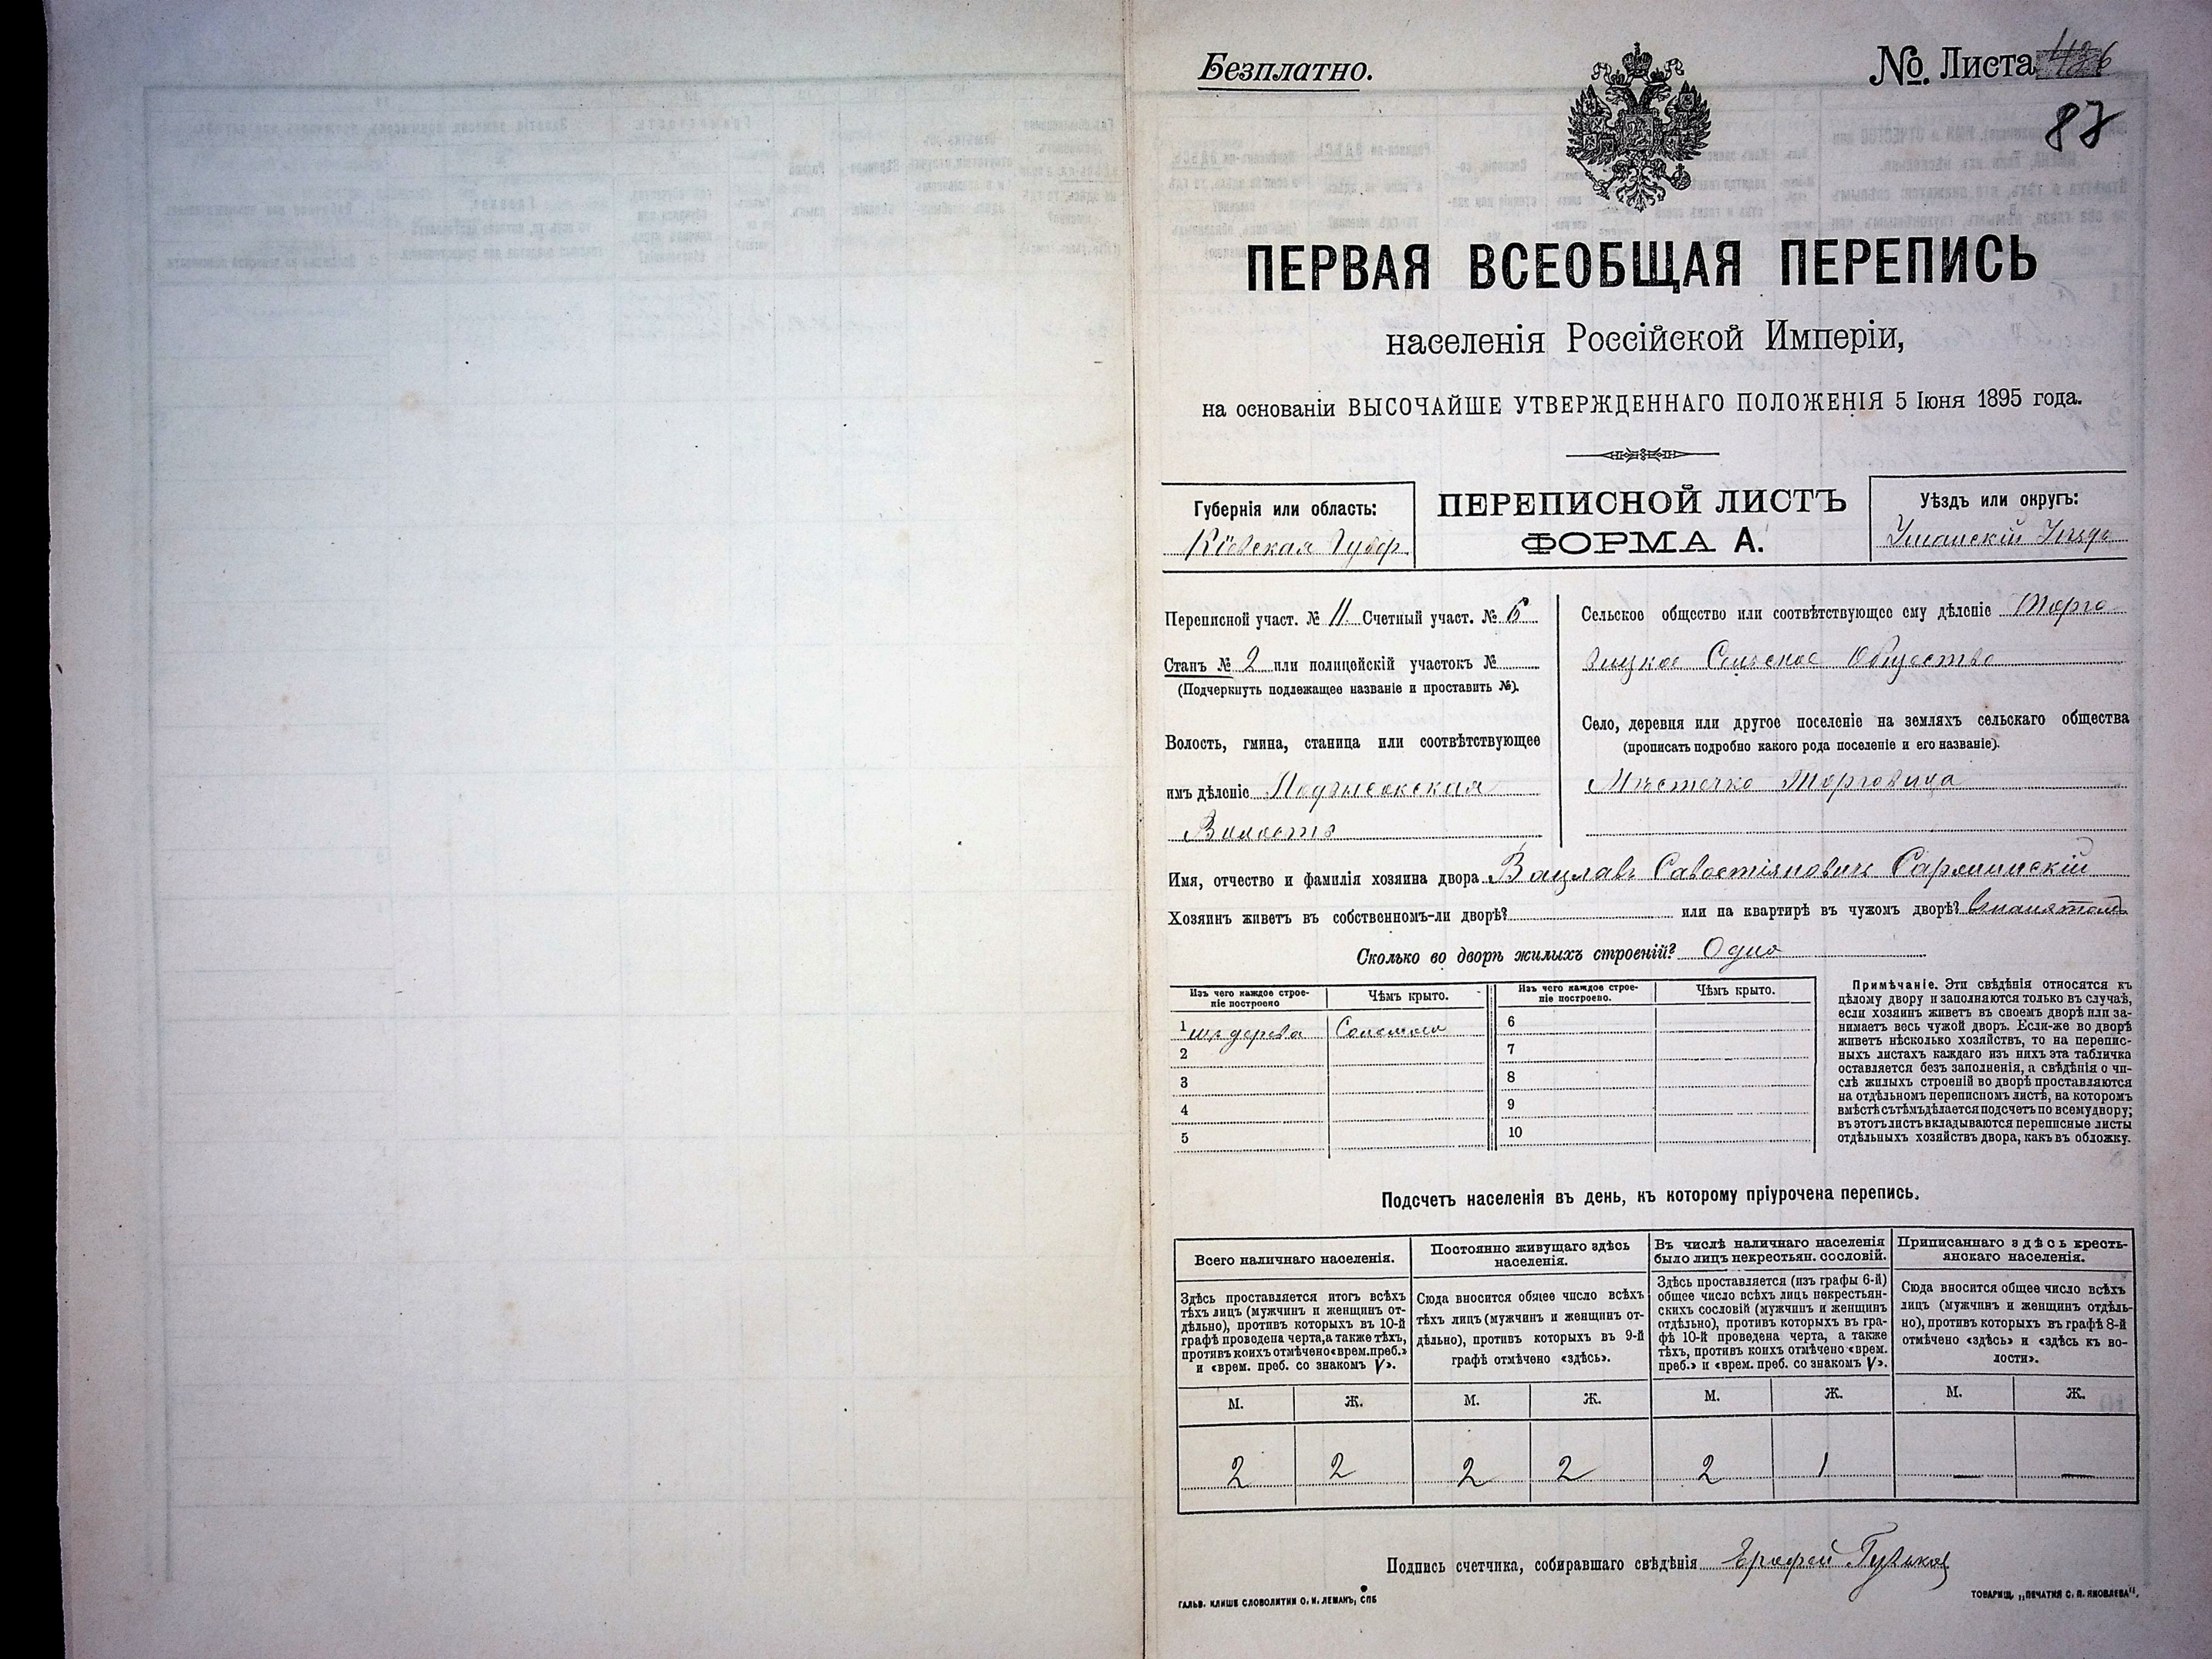 Безплатно.
№ Листа
87
ПЕРВАЯ ВСЕОБЩАЯ ПЕРЕПИСЬ
населенія Россійской Имперіи,
на основаніи ВЫСОЧАЙШЕ УТВЕРЖДЕННАГО ПОЛОЖЕНІЯ 5 Іюня 1895 года.
Губернія или область:
Кіевская Губер.
ПЕРЕПИСНОЙ ЛИСТЪ
ФОРМА А.
Уѣздъ или округъ:
Уманскій Уѣздъ
Переписной участ. № 11. Счетный участ. № 6
Станъ № 2 или полицейскій участокъ №
(Подчеркнуть подлежащее названіе и проставить №).
Волость, гмина, станица или соотвѣтствующее
имъ дѣленіе Подвысокская
Волость
Сельское общество или соотвѣтствующее ему дѣленіе Торго
вицкое Сельское Общество
Село, деревня или другое поселеніе на земляхъ сельскаго общества
(прописать подробно какого рода поселеніе и его названіе).
Мѣстечко Торговица
Имя, отчество и фамилія хозяина двора Вацлавъ Савостіяновичъ
Хозяинъ живетъ въ собственномъ-ли дворѣ? или на квартирѣ въ чужомъ дворѣ?
Сколько во дворѣ жилыхъ строеній? Одно
Изъ чего каждое строе-
ніе построено
Чѣмъ крыто.
Изъ чего каждое строе-
ніе построено.
Чѣмъ крыто.
1 изъ дерева Соломою
2
3
4
5
6
7
8
9
10
Примѣчаніе. Эти свѣдѣнія относятся къ
цѣлому двору и заполняются только въ случаѣ,
если хозяинъ живетъ въ своемъ дворѣ или за-
нимаетъ весь чужой дворъ. Если-же во дворѣ
живетъ нѣсколько хозяйствъ, то на перепис-
ныхъ листахъ каждаго изъ нихъ эта табличка
оставляется безъ заполненія, а свѣдѣнія о чи-
слѣ жилыхъ строеній во дворѣ проставляются
на отдѣльномъ переписномъ листѣ, на которомъ
вмѣстѣ съ тѣмъ дѣлается подсчетъ по всему двору;
въ этотъ листъ вкладываются переписные листы
отдѣльныхъ хозяйствъ двора, какъ въ обложку.
Подсчетъ населенія въ день, къ которому пріурочена перепись.
Всего наличнаго населенія.
Здѣсь проставляется итогъ всѣхъ
тѣхъ лицъ (мужчинъ и женщинъ от-
дѣльно), противъ которыхъ въ 10-й
графѣ проведена черта, а также тѣхъ,
противъ коихъ отмѣчено «врем. преб.»
и «врем. преб. со знакомъ V».
Постоянно живущаго здѣсь
населенія.
Сюда вносится общее число всѣхъ
тѣхъ лицъ (мужчинъ и женщинъ от-
дѣльно), противъ которыхъ въ 9-й
графѣ отмѣчено «здѣсь».
Въ числѣ наличнаго населенія
было лицъ некрестьян. сословій.
Здѣсь проставляется (изъ графы 6-й)
общее число всѣхъ лицъ некрестьян-
скихъ сословій (мужчинъ и женщинъ
отдѣльно), противъ которыхъ въ гра-
фѣ 10-й проведена черта, а также
тѣхъ, противъ коихъ отмѣчено «врем.
преб.» и «врем. преб. со знакомъ V».
Приписаннаго здѣсь кресть-
янскаго населенія.
Сюда вносится общее число всѣхъ
лицъ (мужчинъ и женщинъ отдѣль-
но), противъ которыхъ въ графѣ 8-й
отмѣчено «здѣсь» и «здѣсь къ во-
лости».
М. Ж. М. Ж. М. Ж. М. Ж.
2 2 2 2 2 1 — —
Подпись счетчика, собиравшаго свѣдѣнія Ерофей
ГАЛЬВ. КЛИШЕ СЛОВОЛИТНИ О. И. ЛЕМАНЪ, СПБ
ТОВАРИЩ. „ПЕЧАТНЯ С. П. ЯКОВЛЕВА".